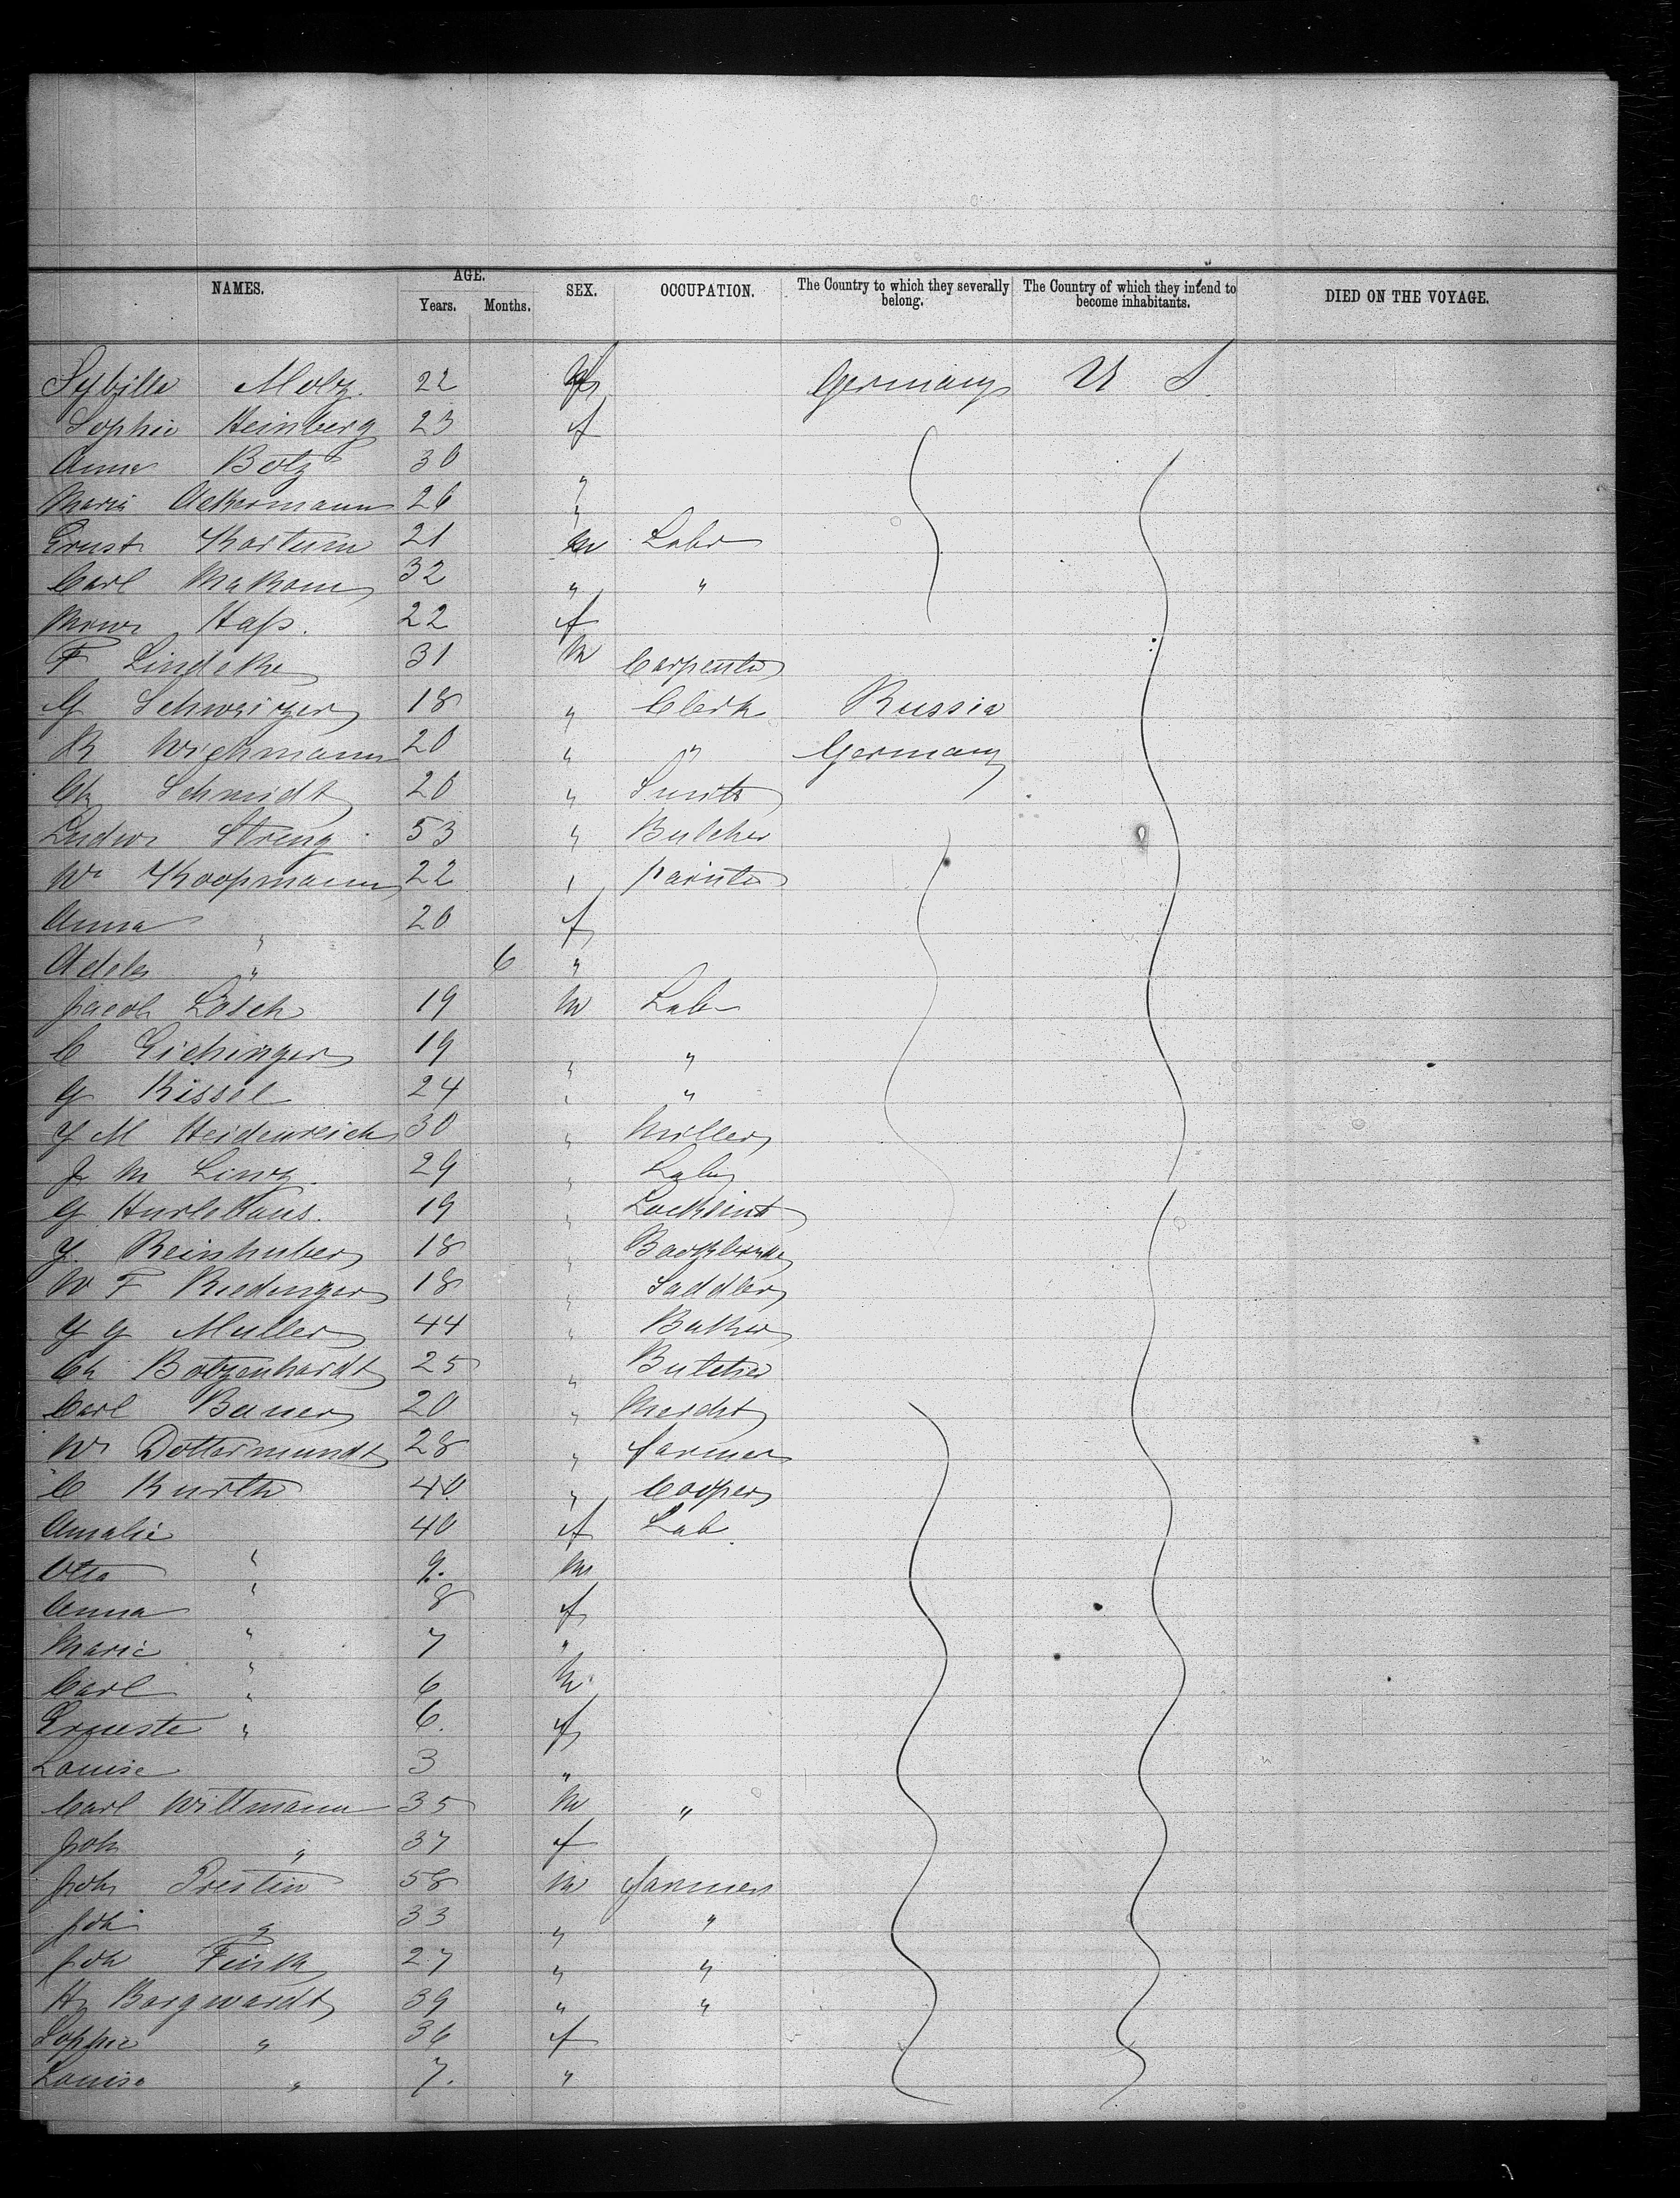 NAMES. AGE. Years. Months. SEX. OCCUPATION. The Country to which they severally belong. The Country of which they intend to become inhabitants. DIED ON THE VOYAGE.
Sybilla Molz. 22 f Germany U S.
Sophie Heinberg 23 f
Anna Botz 30 "
Maria Ackermann 26 "
Ernst Kortum 21 m Labr
Carl Makom 32 " "
Minna Hass. 22 f
F Lindeke 31 m Carpenter
G Schweizer 18 " Clerk Russia
R Wichmann 20 " " Germany
Ch Schmidt 20 " Smith
Ludw. Streng 53 " Butcher
W Koopmann 22 " painter
Anna " 20 f
Adele " 6 "
Jacob Losch 19 m Lab
C Eichinger 19 " "
G Kissel 24 " "
J M Heidenreich 30 " Miller
J M Linz. 29 " Labr
G Hurlebaus. 19 " Locksmt
J. Beinhuber 18 " Bookbinde
W F Riedinger 18 " Saddler
J G Muller 44 " Baker
Ch Botzenhardt 25 " Butcher
Carl Bauer 20 " Mercht
W Dottermundt 28 " farmer
C Kurth 40 " Cooper
Amalie " 40 f Lab.
Otto " 9. m
Anna " 8 f
Marie " 7 "
Carl " 6 m
Erneste " 6. f
Louise 3 "
Carl Wittmann 35 m "
Joh " 37 f
Joh Prestin 58 m farmer
Joh " 33 " "
Joh Fink 27 " "
H Borgwardt 39 " "
Sophie " 36 f
Louise " 7. "